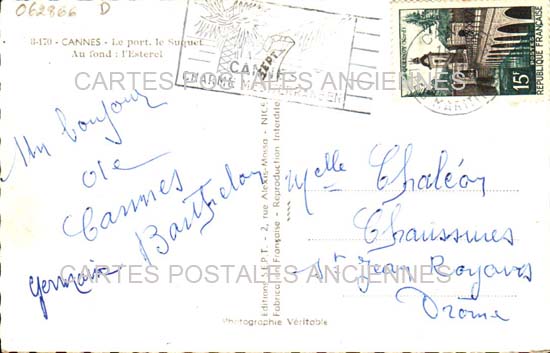 062866 D
8420 - CANNES - Le port, le Suquet
Au fond : l'Esterel
CANNES
CHARME
SEPT.
15F
REPUBLIQUE FRANÇAISE
MARITI
CARTES POSTALES ANCIENNES
Un bonjour
de
Cannes
Germaine Barthelon
Editions S.E.P.T. - 2, rue Alexis-Mossa - NICE
Fabrication Française - Reproduction Interdite
Photographie Véritable
Melle Chaléon
Chaussures
St Jean Royans
Drôme
CARTES POSTALES ANCIENNES